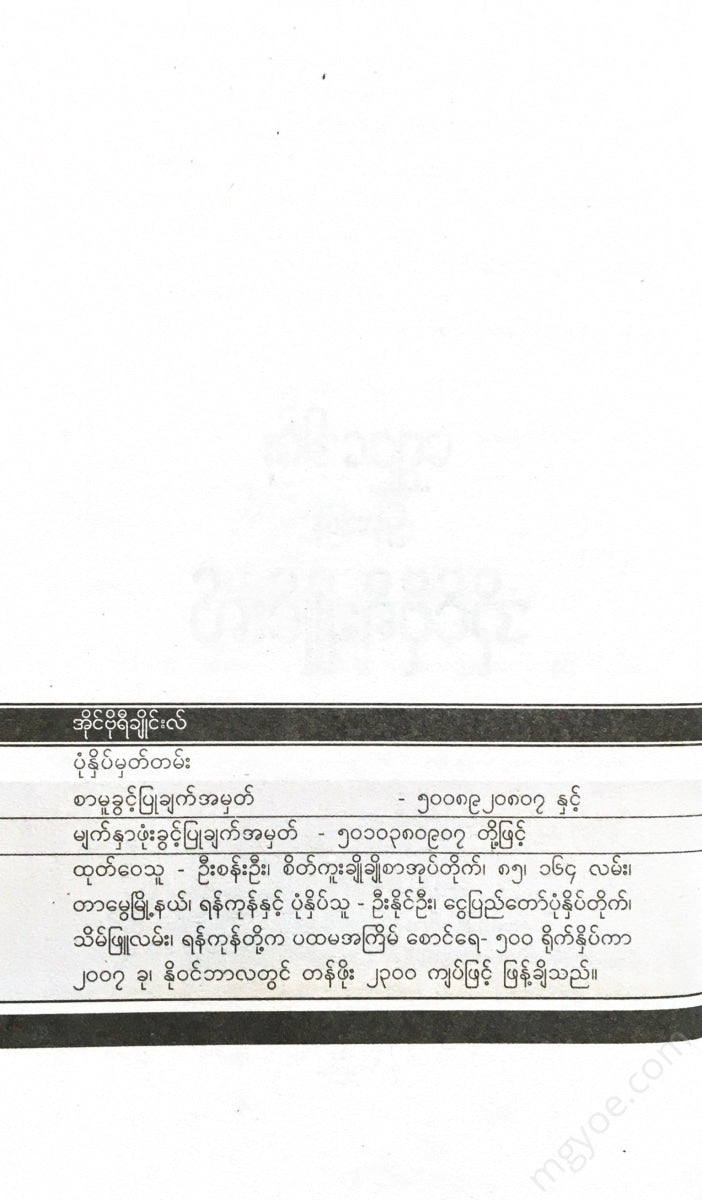 အိုင်ဗိုရီချိုင်းလ်
ပုံနှိပ်မှတ်တမ်း
စာမူခွင့်ပြုချက်အမှတ် - ၅၀၀၈၉၂၀၈၀၇ နှင့်
မျက်နှာဖုံးခွင့်ပြုချက်အမှတ် - ၅၀၁၀၃၈၀၉၀၇ တို့ဖြင့်
ထုတ်ဝေသူ - ဦးစန်းဦး၊ စိတ်ကူးချိုချိုစာအုပ်တိုက်၊ ၈၅၊ ၁၆၄ လမ်း၊
တာမွေမြို့နယ်၊ ရန်ကုန်နှင့် ပုံနှိပ်သူ - ဦးနိုင်ဦး၊ ငွေပြည်တော်ပုံနှိပ်တိုက်၊
သိမ်ဖြူလမ်း၊ ရန်ကုန်တို့က ပထမအကြိမ် စောင်ရေ- ၅၀၀ ရိုက်နှိပ်ကာ
၂၀၀၇ ခု၊ နိုဝင်ဘာလတွင် တန်ဖိုး ၂၃၀၀ ကျပ်ဖြင့် ဖြန့်ချိသည်။
mgyoe.com